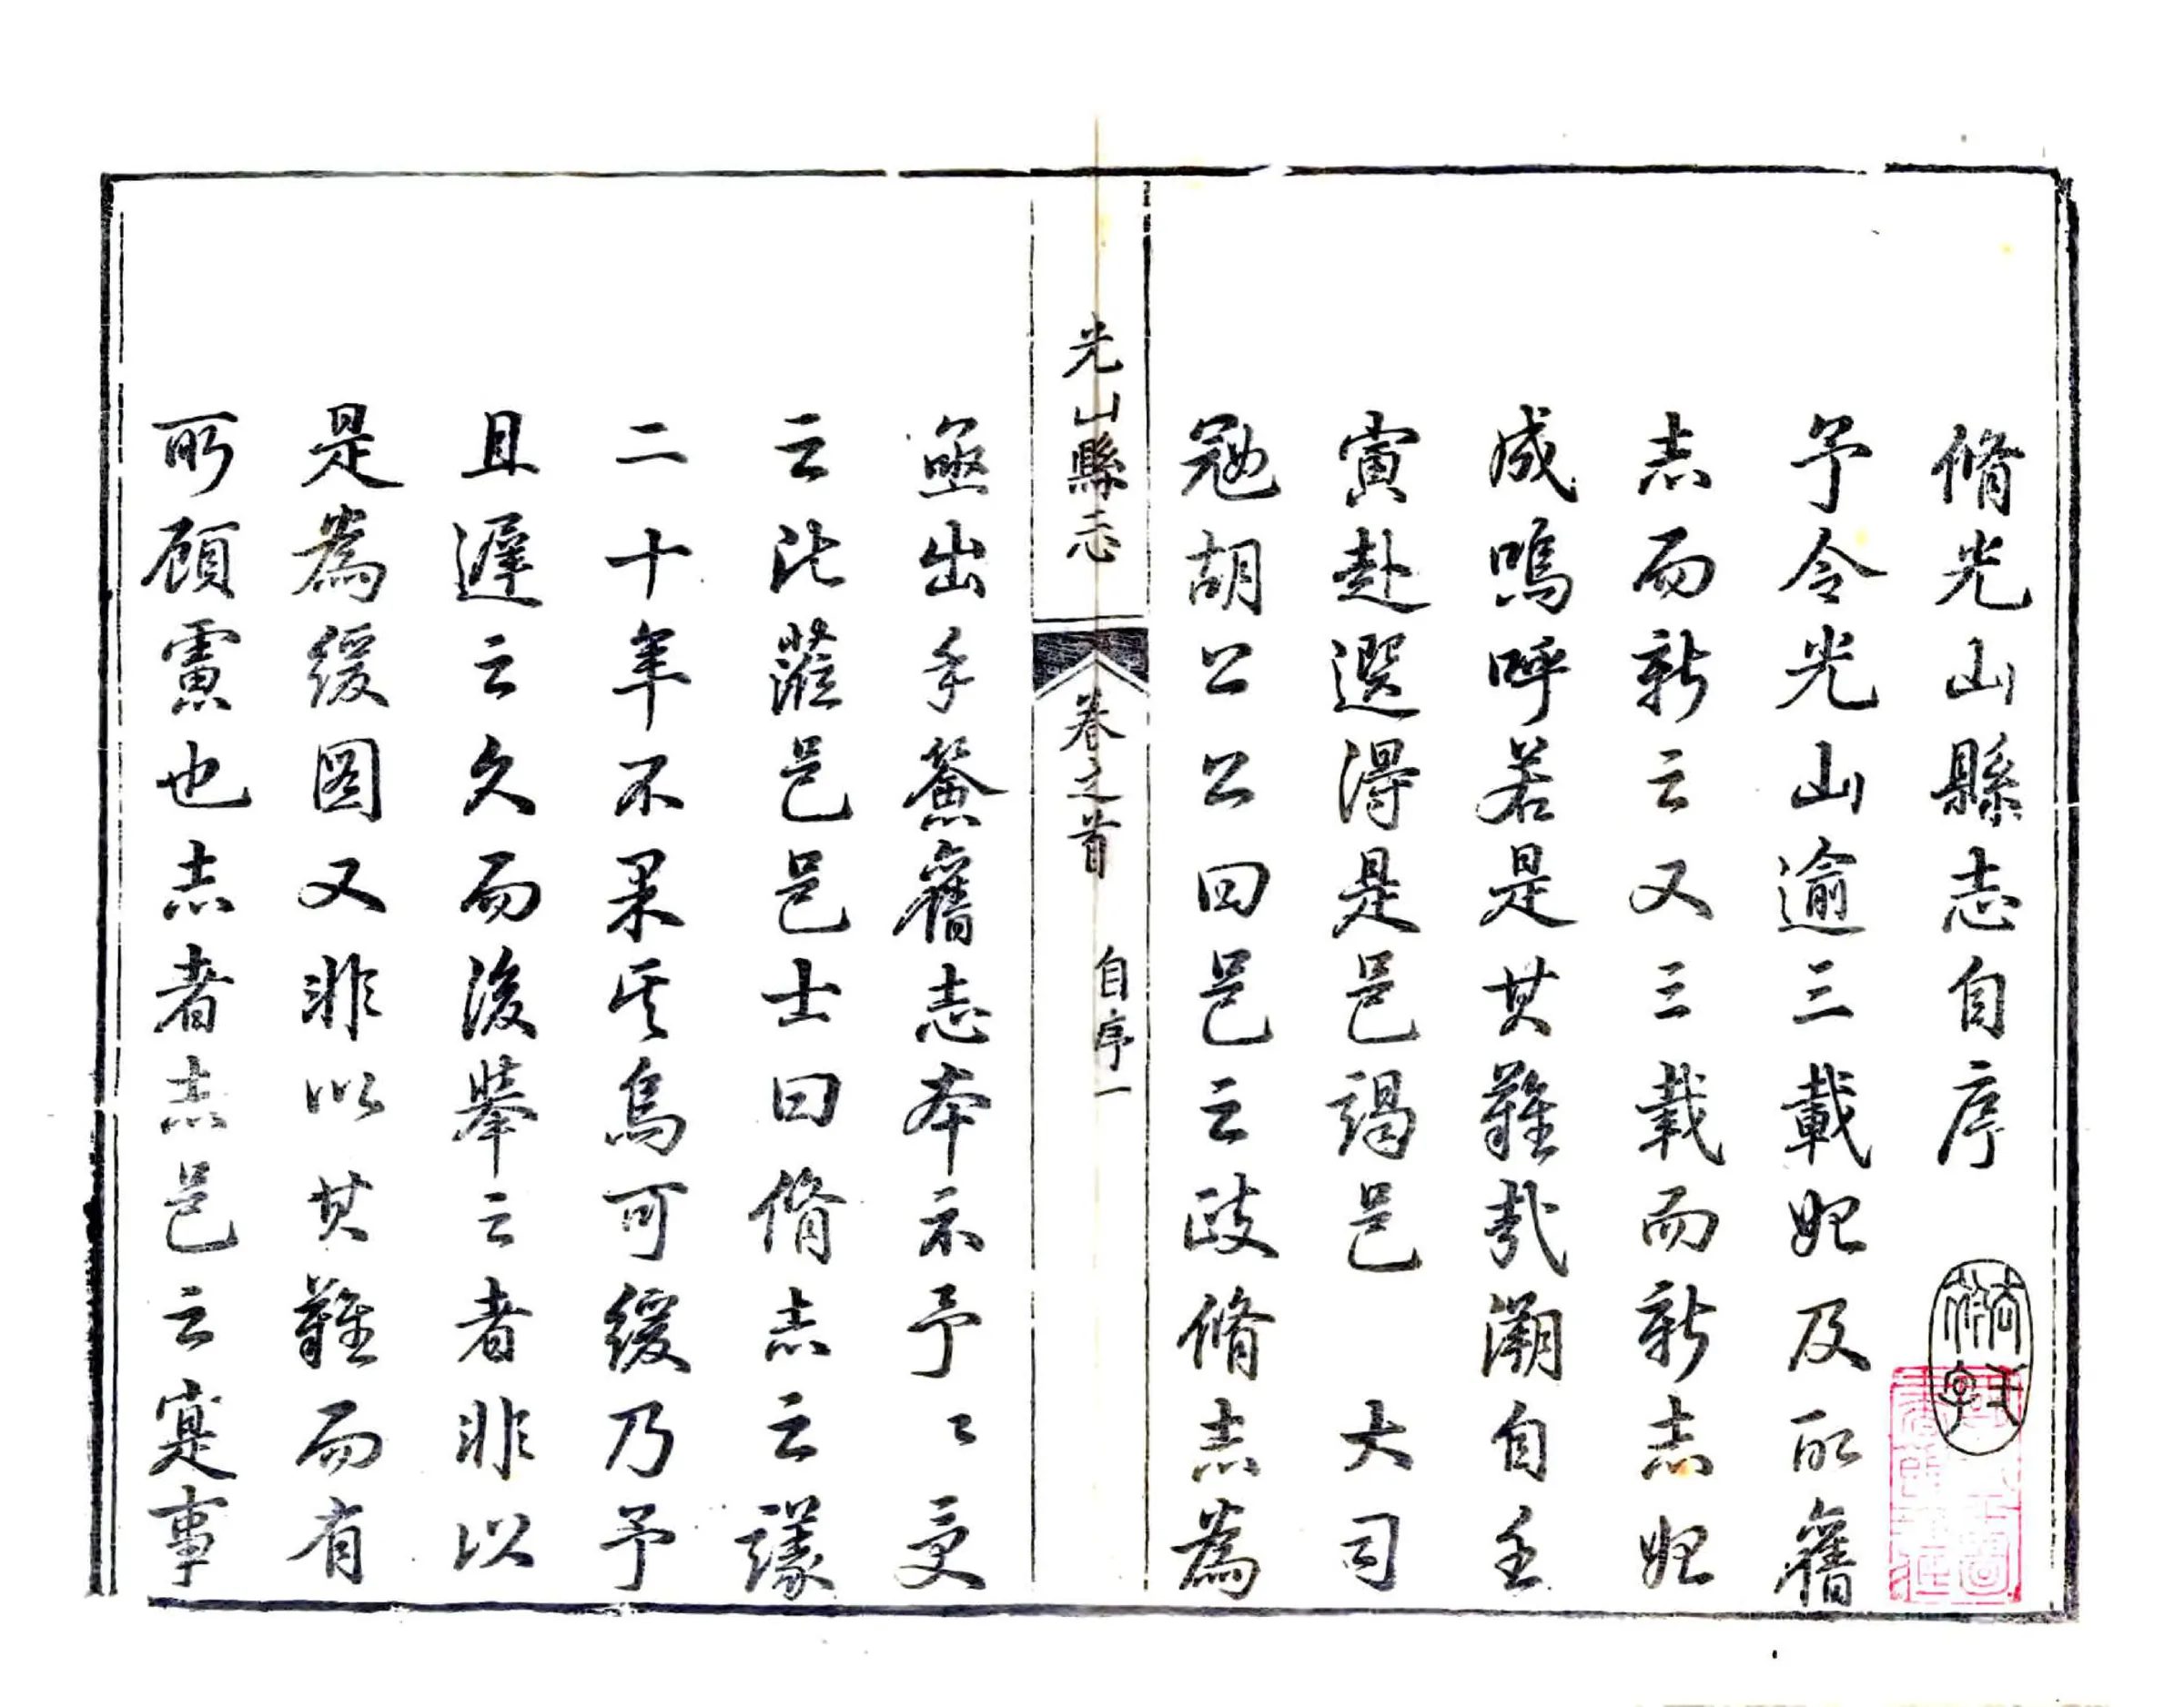 脩光山縣志自序
予令光山逾三載始及所舊
志而新之又三載而新志始
成嗚呼若是其難哉溯自壬
寅赴選得是邑謁邑 大司
寇胡公公曰邑之政脩志為
光山縣志 卷之首 自序一
亟出手簽舊志本示予〻受
之比蒞邑邑士曰脩志之議
二十年不果矣烏可緩乃予
且遲之久而後舉之者非以
是為緩圖又非以其難而有
所顧慮也志者志邑之寔事